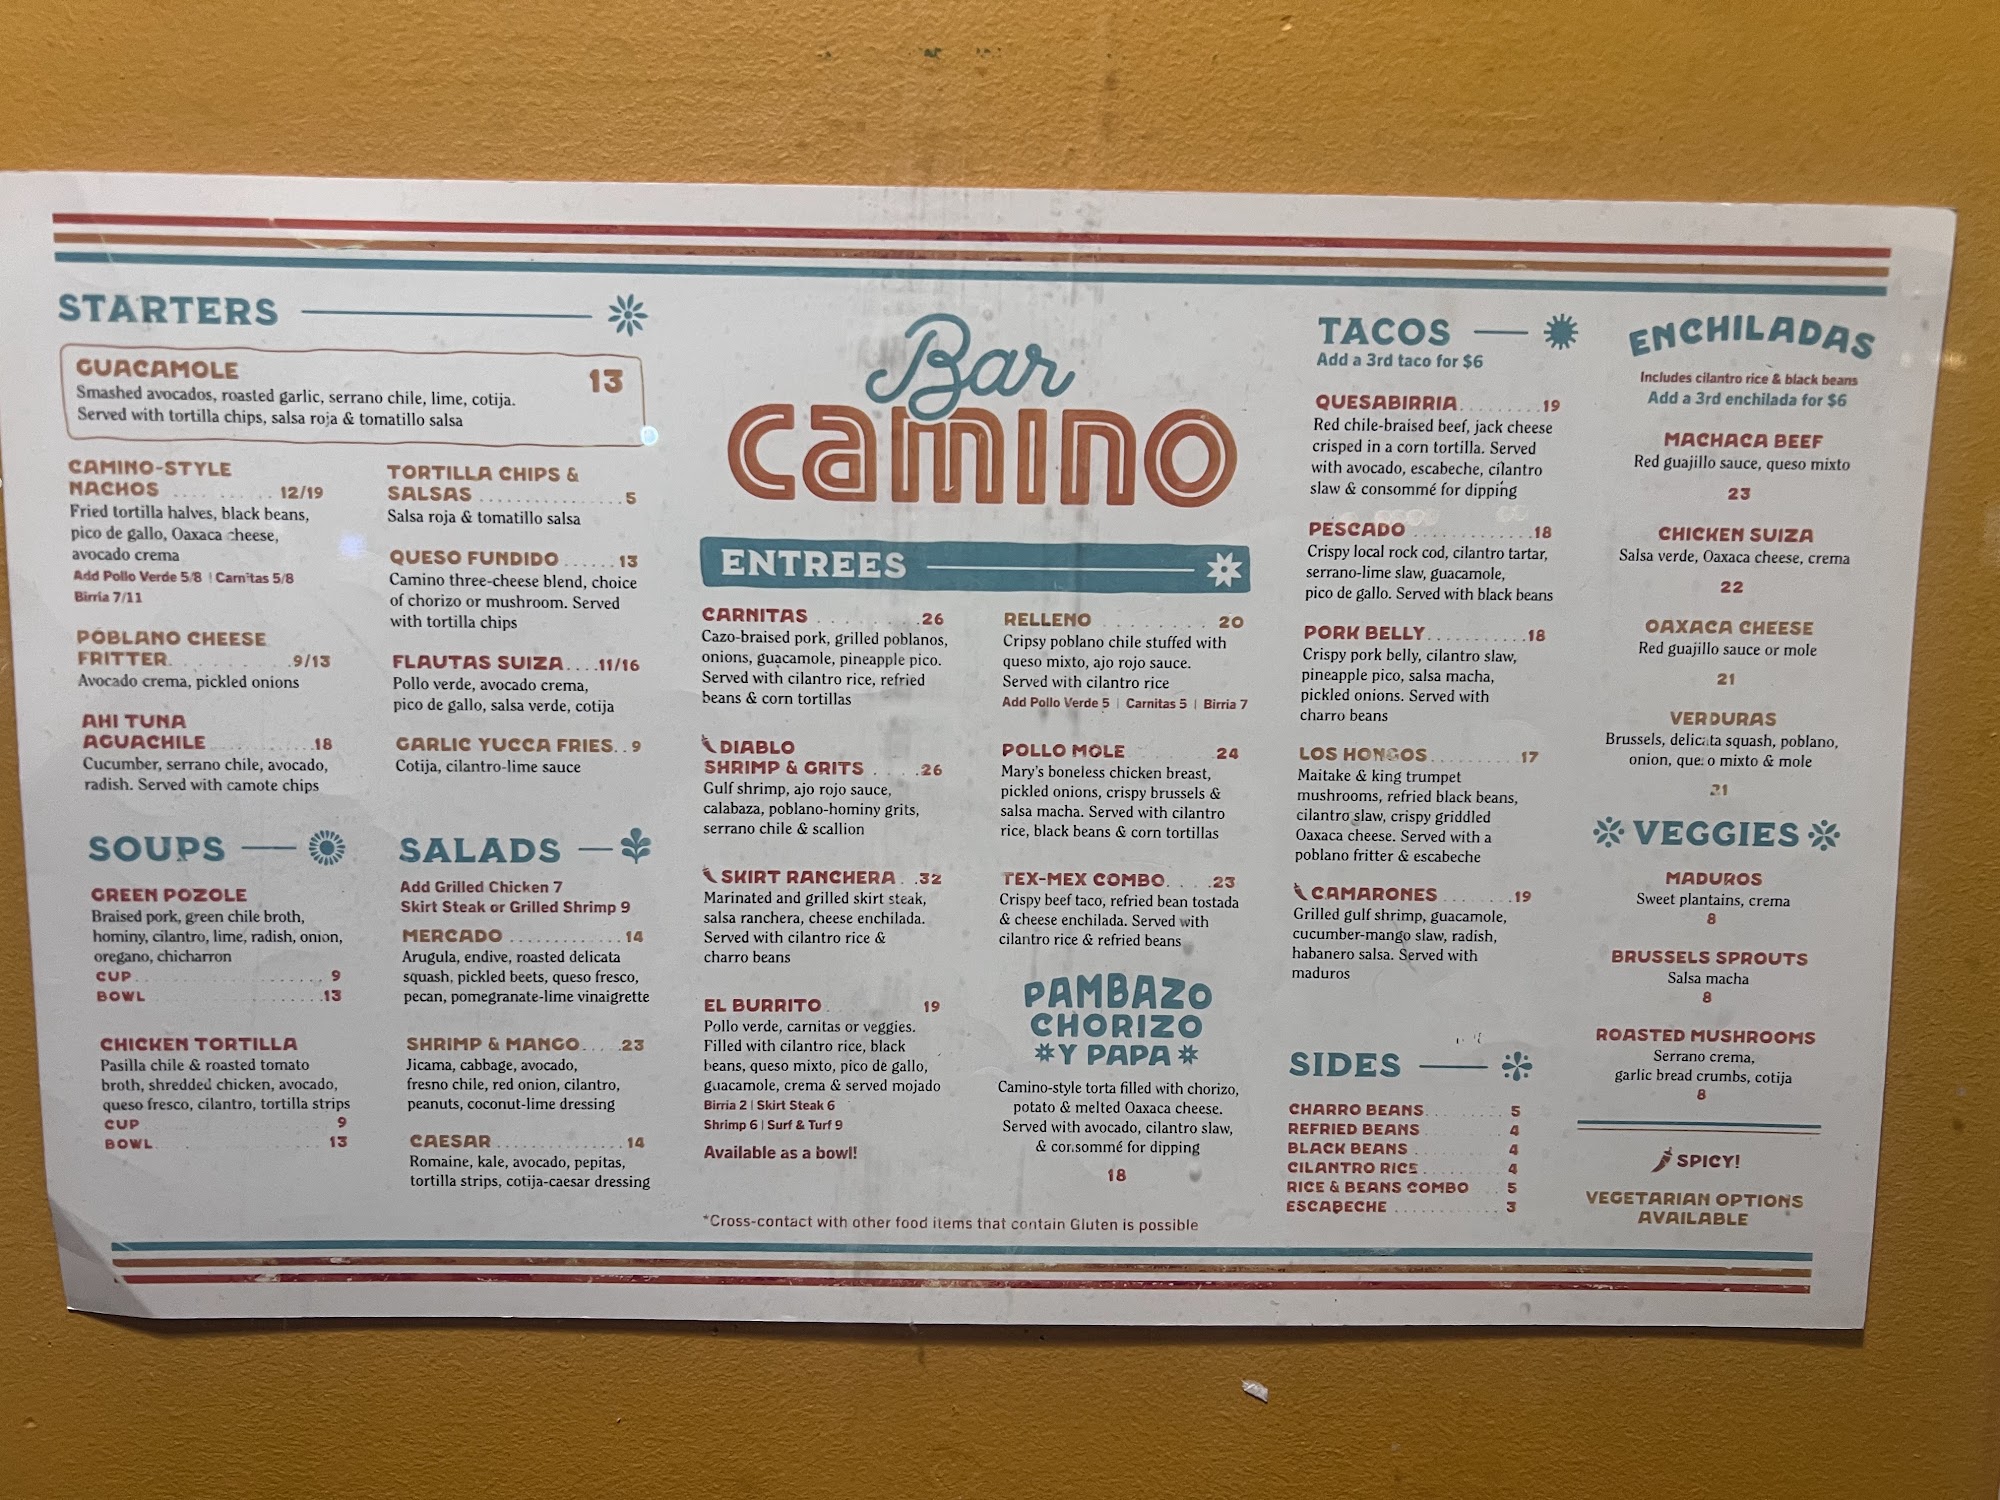 STARTERS
GUACAMOLE 13
Smashed avocados, roasted garlic, serrano chile, lime, cotija.
Served with tortilla chips, salsa roja & tomatillo salsa
CAMINO-STYLE
NACHOS 12/19
Fried tortilla halves, black beans,
pico de gallo, Oaxaca cheese,
avocado crema
Add Pollo Verde 5/8 | Carnitas 5/8
Birria 7/11
POBLANO CHEESE
FRITTER 9/13
Avocado crema, pickled onions
AHI TUNA
AGUACHILE 18
Cucumber, serrano chile, avocado,
radish. Served with camote chips
TORTILLA CHIPS &
SALSAS 5
Salsa roja & tomatillo salsa
QUESO FUNDIDO 13
Camino three-cheese blend, choice
of chorizo or mushroom. Served
with tortilla chips
FLAUTAS SUIZA 11/16
Pollo verde, avocado crema,
pico de gallo, salsa verde, cotija
GARLIC YUCCA FRIES 9
Cotija, cilantro-lime sauce
SOUPS
GREEN POZOLE
Braised pork, green chile broth,
hominy, cilantro, lime, radish, onion,
oregano, chicharron
CUP 9
BOWL 13
CHICKEN TORTILLA
Pasilla chile & roasted tomato
broth, shredded chicken, avocado,
queso fresco, cilantro, tortilla strips
CUP 9
BOWL 13
SALADS
Add Grilled Chicken 7
Skirt Steak or Grilled Shrimp 9
MERCADO 14
Arugula, endive, roasted delicata
squash, pickled beets, queso fresco,
pecan, pomegranate-lime vinaigrette
SHRIMP & MANGO 23
Jicama, cabbage, avocado,
fresno chile, red onion, cilantro,
peanuts, coconut-lime dressing
CAESAR 14
Romaine, kale, avocado, pepitas,
tortilla strips, cotija-caesar dressing
Bar
Camino
ENTREES
CARNITAS 26
Cazo-braised pork, grilled poblanos,
onions, guacamole, pineapple pico.
Served with cilantro rice, refried
beans & corn tortillas
DIABLO
SHRIMP & GRITS 26
Gulf shrimp, ajo rojo sauce,
calabaza, poblano-hominy grits,
serrano chile & scallion
SKIRT RANCHERA 32
Marinated and grilled skirt steak,
salsa ranchera, cheese enchilada.
Served with cilantro rice &
charro beans
EL BURRITO 19
Pollo verde, carnitas or veggies.
Filled with cilantro rice, black
beans, queso mixto, pico de gallo,
guacamole, crema & served mojado
Birria 2 | Skirt Steak 6
Shrimp 6 | Surf & Turf 9
Available as a bowl!
RELLENO 20
Cripsy poblano chile stuffed with
queso mixto, ajo rojo sauce.
Served with cilantro rice
Add Pollo Verde 5 | Carnitas 5 | Birria 7
POLLO MOLE 24
Mary's boneless chicken breast,
pickled onions, crispy brussels &
salsa macha. Served with cilantro
rice, black beans & corn tortillas
TEX-MEX COMBO 23
Crispy beef taco, refried bean tostada
& cheese enchilada. Served with
cilantro rice & refried beans
PAMBAZO
CHORIZO
Y PAPA
Camino-style torta filled with chorizo,
potato & melted Oaxaca cheese.
Served with avocado, cilantro slaw,
& consommé for dipping
18
*Cross-contact with other food items that contain Gluten is possible
TACOS
Add a 3rd taco for $6
QUESABIRRIA 19
Red chile-braised beef, jack cheese
crisped in a corn tortilla. Served
with avocado, escabeche, cilantro
slaw & consommé for dipping
PESCADO 18
Crispy local rock cod, cilantro tartar,
serrano-lime slaw, guacamole,
pico de gallo. Served with black beans
PORK BELLY 18
Crispy pork belly, cilantro slaw,
pineapple pico, salsa macha,
pickled onions. Served with
charro beans
LOS HONGOS 17
Maitake & king trumpet
mushrooms, refried black beans,
cilantro slaw, crispy griddled
Oaxaca cheese. Served with a
poblano fritter & escabeche
CAMARONES 19
Grilled gulf shrimp, guacamole,
cucumber-mango slaw, radish,
habanero salsa. Served with
maduros
SIDES
CHARRO BEANS 5
REFRIED BEANS 4
BLACK BEANS 4
CILANTRO RICE 4
RICE & BEANS COMBO 5
ESCABECHE 3
ENCHILADAS
Includes cilantro rice & black beans
Add a 3rd enchilada for $6
MACHACA BEEF
Red guajillo sauce, queso mixto
23
CHICKEN SUIZA
Salsa verde, Oaxaca cheese, crema
22
OAXACA CHEESE
Red guajillo sauce or mole
21
VERDURAS
Brussels, delicata squash, poblano,
onion, queso mixto & mole
21
VEGGIES
MADUROS
Sweet plantains, crema
8
BRUSSELS SPROUTS
Salsa macha
8
ROASTED MUSHROOMS
Serrano crema,
garlic bread crumbs, cotija
8
SPICY!
VEGETARIAN OPTIONS
AVAILABLE